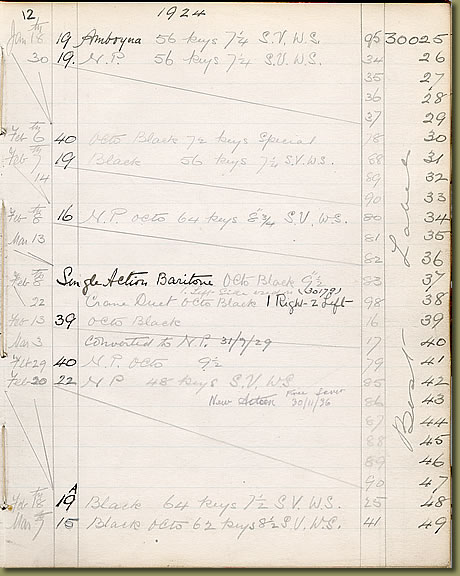 12 1924
Jan 18th 19 Amboyna 56 keys 7¼ S.V. W.S. 95 30025
30 19. N.P. 56 keys 7¼ S.V. W.S. 34 26
35 27
36 28
37 29
Feb 6th 40 Octo Black 72 keys Special 78 30
Feb 7th 19 Black 56 keys 7¼ S.V. W.S. 88 31
14 89 32
90 33
Feb 8th 16 N.P. Octo 64 keys 8¾ S.V. W.S. 80 34
Mar 13 81 35
82 36
Feb 8th Single Action Baritone Octo Black 9½ 83 37
(30179)
22 Crane Duet Octo Black 1 Right-2 Left 98 38
Feb 13 39 Octo Black 16 39
Mar 3 Converted to N.P. 31/9/29 17 40
Feb 29 40 N.P. Octo 9½ 79 41
Feb 20 22 N P 48 keys S.V. W.S 85 42
New Action 20/11/36 86 43
87 44
88 45
89 46
90 47
Feb 18th 19A Black 64 keys 7½ S.V. W.S. 25 48
Mar 7th 15 Black Octo 62 keys 8½ S.V. W.S. 41 49
Best Label